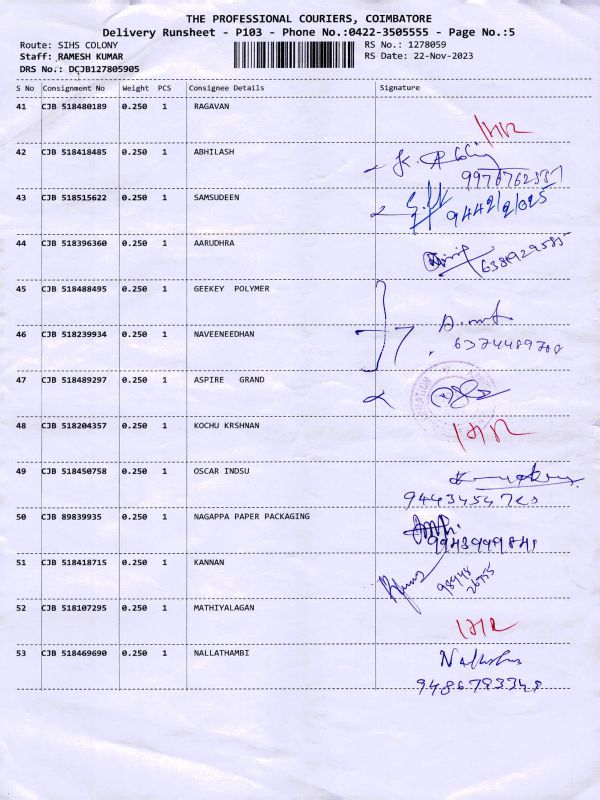 THE PROFESSIONAL COURIERS, COIMBATORE
Delivery Runsheet - P103 - Phone No.:0422-3505555 - Page No.:5
Route: SIHS COLONY
RS No.: 1278059
Staff: RAMESH KUMAR
RS Date: 22-Nov-2023
DRS No.: DCJB127805905
S No Consignment No Weight PCS Consignee Details Signature
41 CJB 518480189 0.250 1 RAGAVAN
42 CJB 518418485 0.250 1 ABHILASH
43 CJB 518515622 0.250 1 SAMSUDEEN
44 CJB 518396360 0.250 1 AARUDHRA
6381929585
45 CJB 518488495 0.250 1 GEEKEY POLYMER
46 CJB 518239934 0.250 1 NAVEENEEDHAN
6374489708
47 CJB 518489297 0.250 1 ASPIRE GRAND
48 CJB 518204357 0.250 1 KOCHU KRSHNAN
49 CJB 518450758 0.250 1 OSCAR INDSU
50 CJB 89839935 0.250 1 NAGAPPA PAPER PACKAGING
51 CJB 518418715 0.250 1 KANNAN
98948
26955
52 CJB 518107295 0.250 1 MATHIYALAGAN
53 CJB 518469690 0.250 1 NALLATHAMBI
9486793348